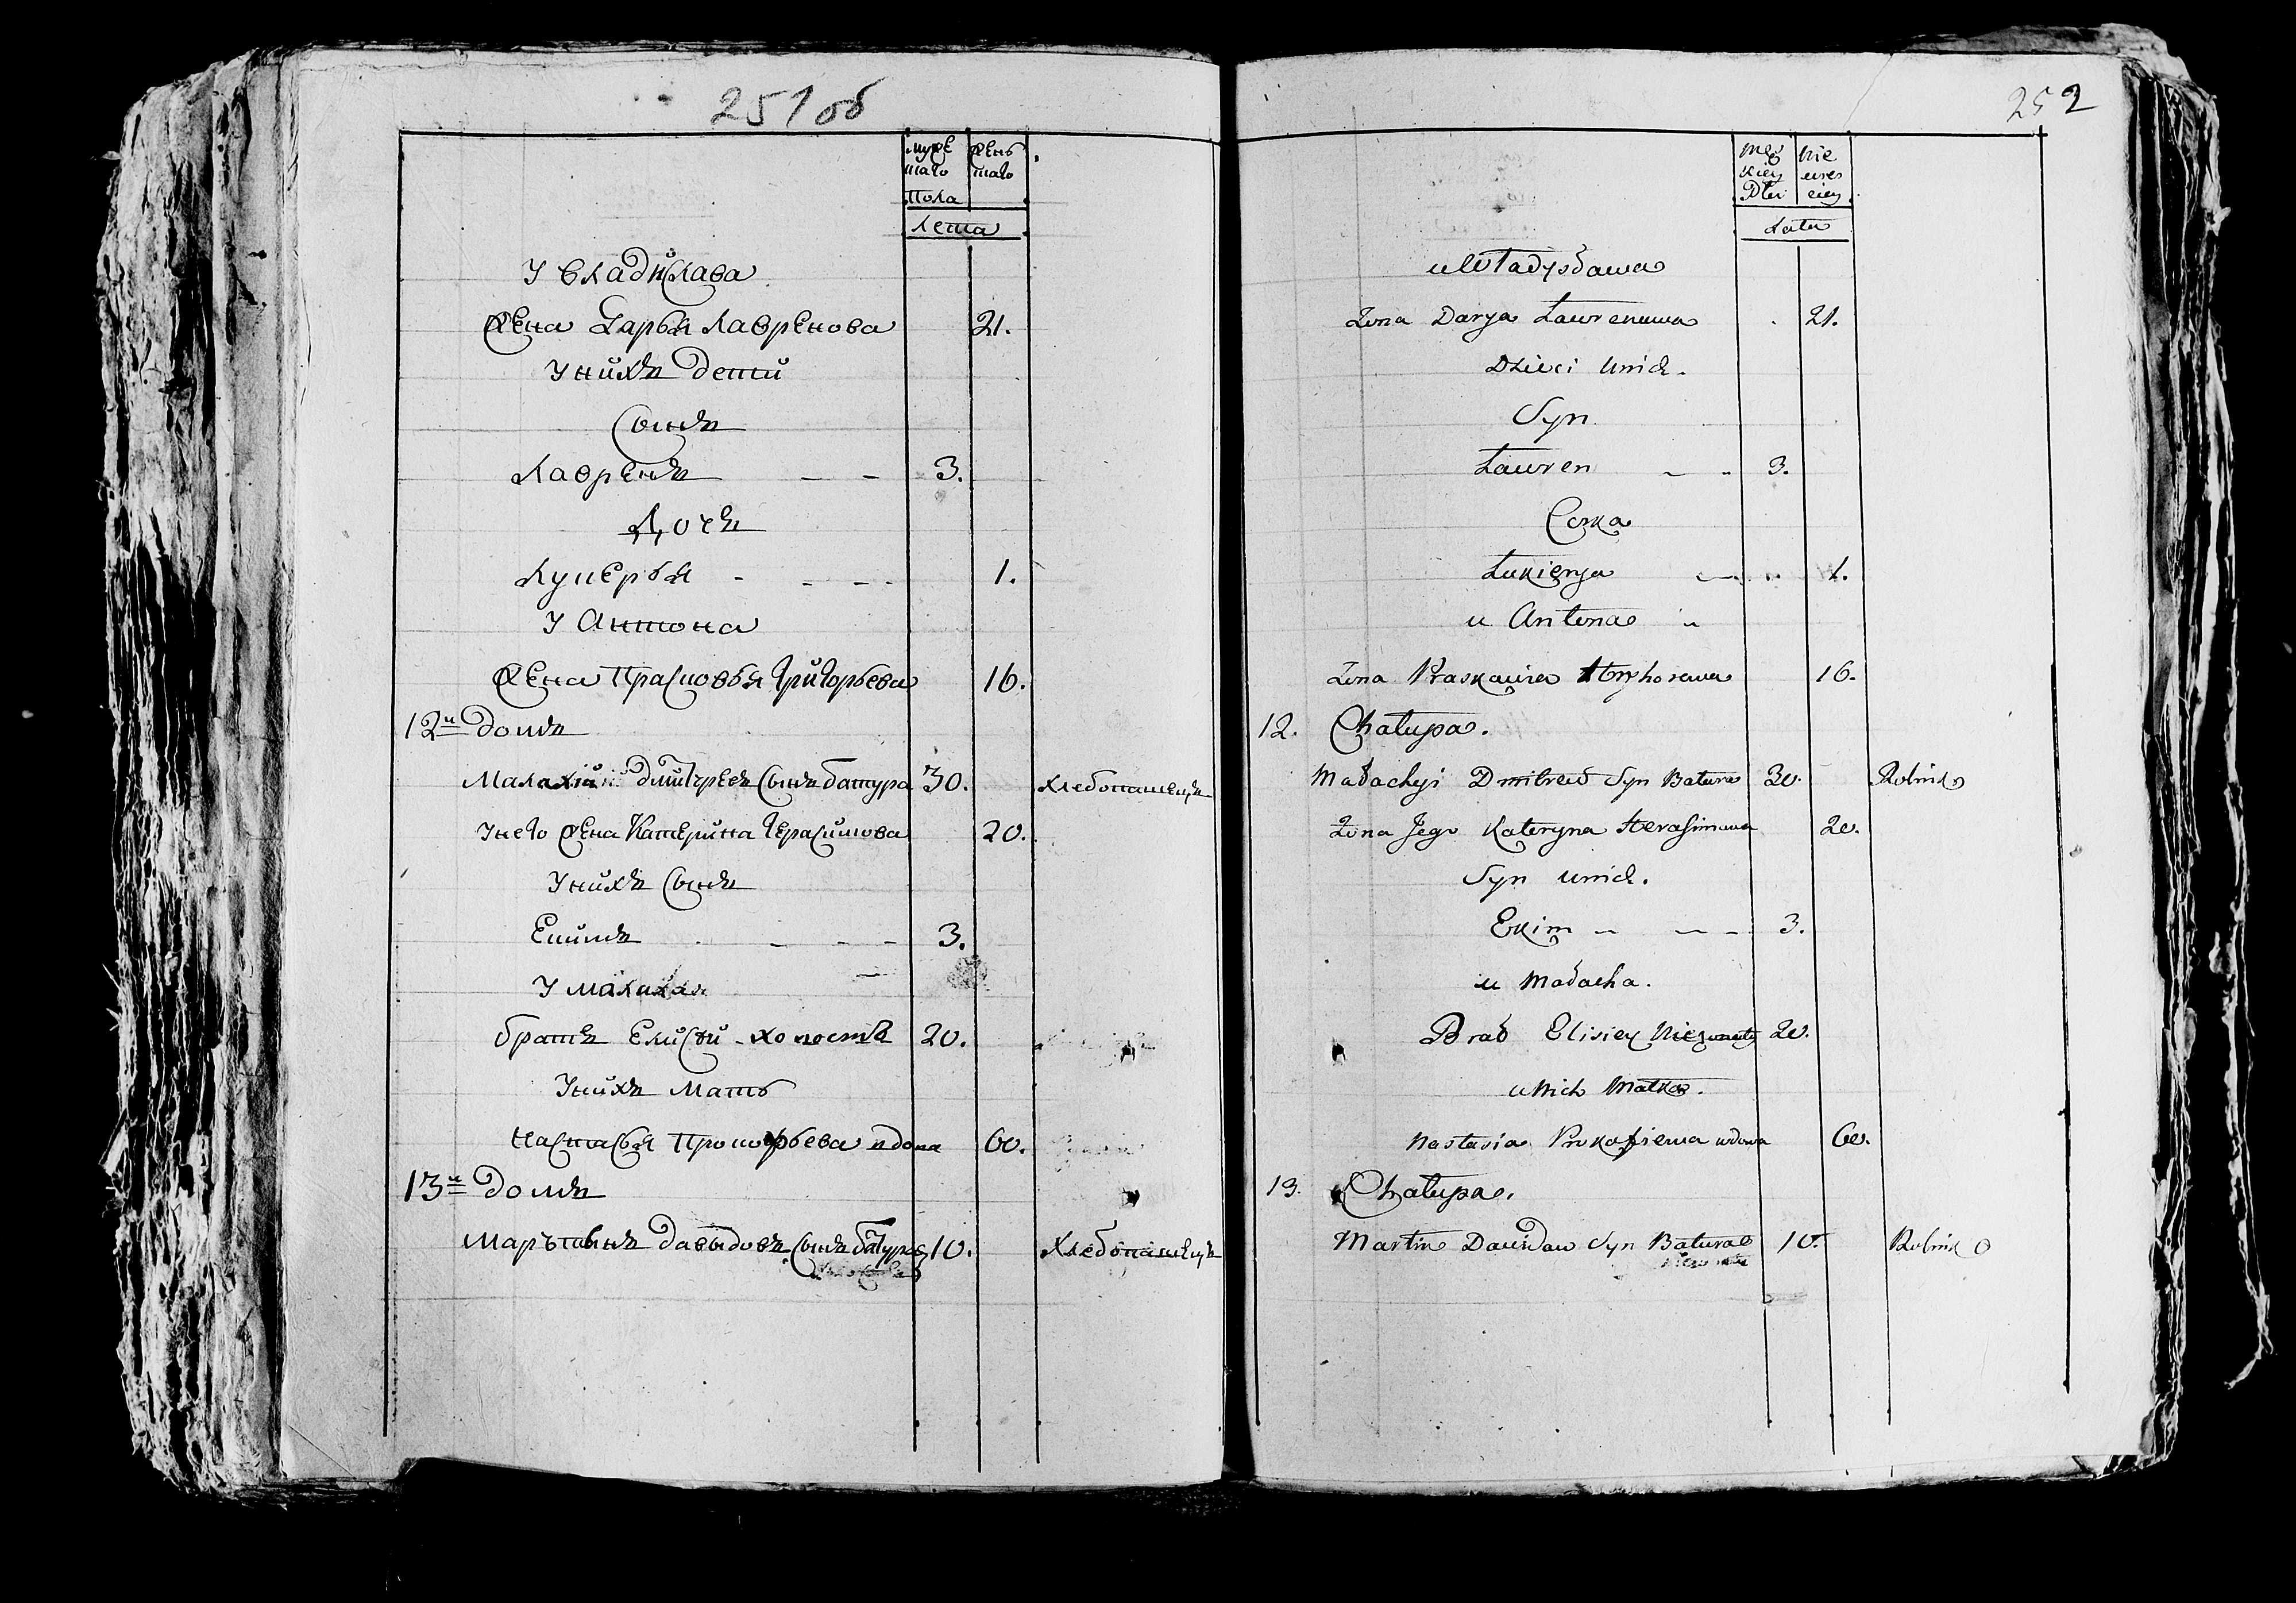 251 об
муже
шаго
пола
жень
шаго
лета
У Владислава
Жена Дарья Лавренова 21.
У нихъ дети
Сынъ
Лавренъ - - 3.
Дочь
Лукерья - - - - 1.
У Антона
Жена Прасковья Григорьева 16.
12й домъ
Малахiй Дмитреевъ Сынъ батура 30. хлебопашецъ
У него Жена Катерина Герасимова 20.
У нихъ Сынъ
Екимъ - - - - 3.
У Малахия
братъ Елисѣй - холостъ 20.
У нихъ Мать
Настасья Прокофьева вдова 60.
13й домъ
Мартынъ давыдовъ Сынъ батура 10. Хлебопашецъ
252
Męz
kiey
Płci
Nie
wies
ciey
Lata
u Władysława
Żona Darya Laurenowa 21.
Dzieci Unich.
Syn
Lauren - - 3.
Corka
Lukierya - - - 1.
u Antona
Żona Praskowia Hryhorewa 16.
12. Chałupa.
Małachyi Dmitreiw Syn Batura 30. Rolnik
Żona Jego Kateryna Herasimowa 20.
Syn unich.
Ekim - - - 3.
u Małacha.
Brat Elisiey Nieżonaty 20.
u Nich Matka.
Nastasia Prokofiewa wdowa 60.
13. Chałupa.
Martin Dawidow Syn Batura 10. Rolnik